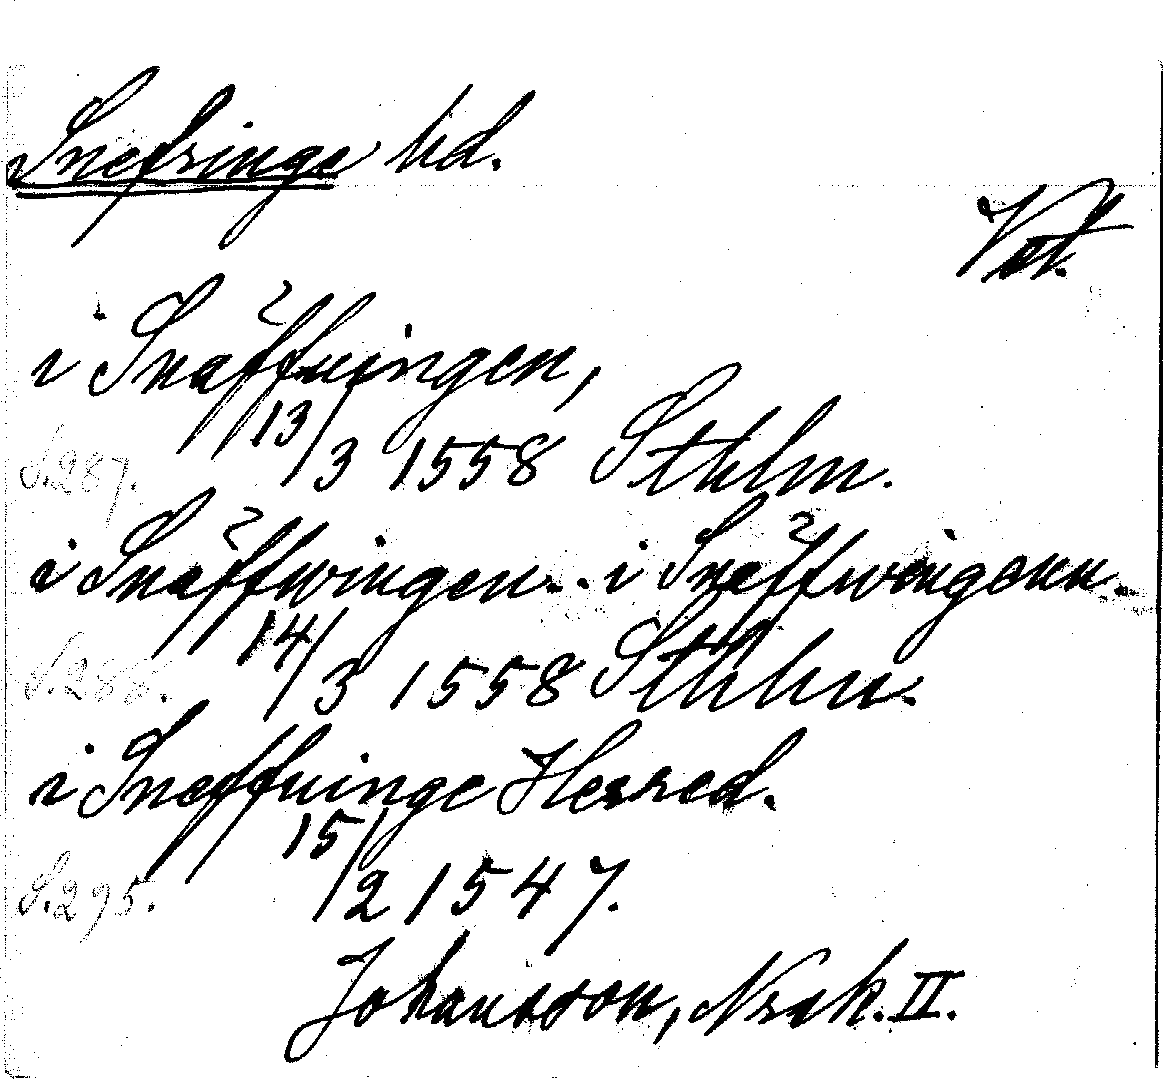 Snefringe hd.
Vst.
i Snäffuingen,
13/3 1558 Sthlm.
S.287.
i Snäffwingen. . i Snäffwingenn.
14/3 1558 Sthlm.
S.288.
i Sneffuinge Herred.
15/2 1547.
S.295.
Johansson, Norak. II.